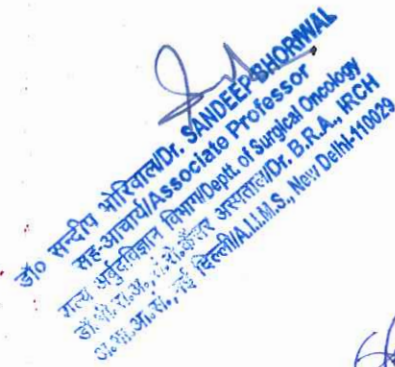 डॉ० सन्दीप भोरिवाल/Dr. SANDEEP BHORIWAL
सह-आचार्य/Associate Professor
शल्य अर्बुदविज्ञान विभाग/Deptt. of Surgical Oncology
डॉ. बी.रा.अ., सं.रो.कैंसर अस्पताल/Dr. B.R.A., IRCH
अ.भा.आ.सं., नई दिल्ली/A.I.I.M.S., New Delhi-110029